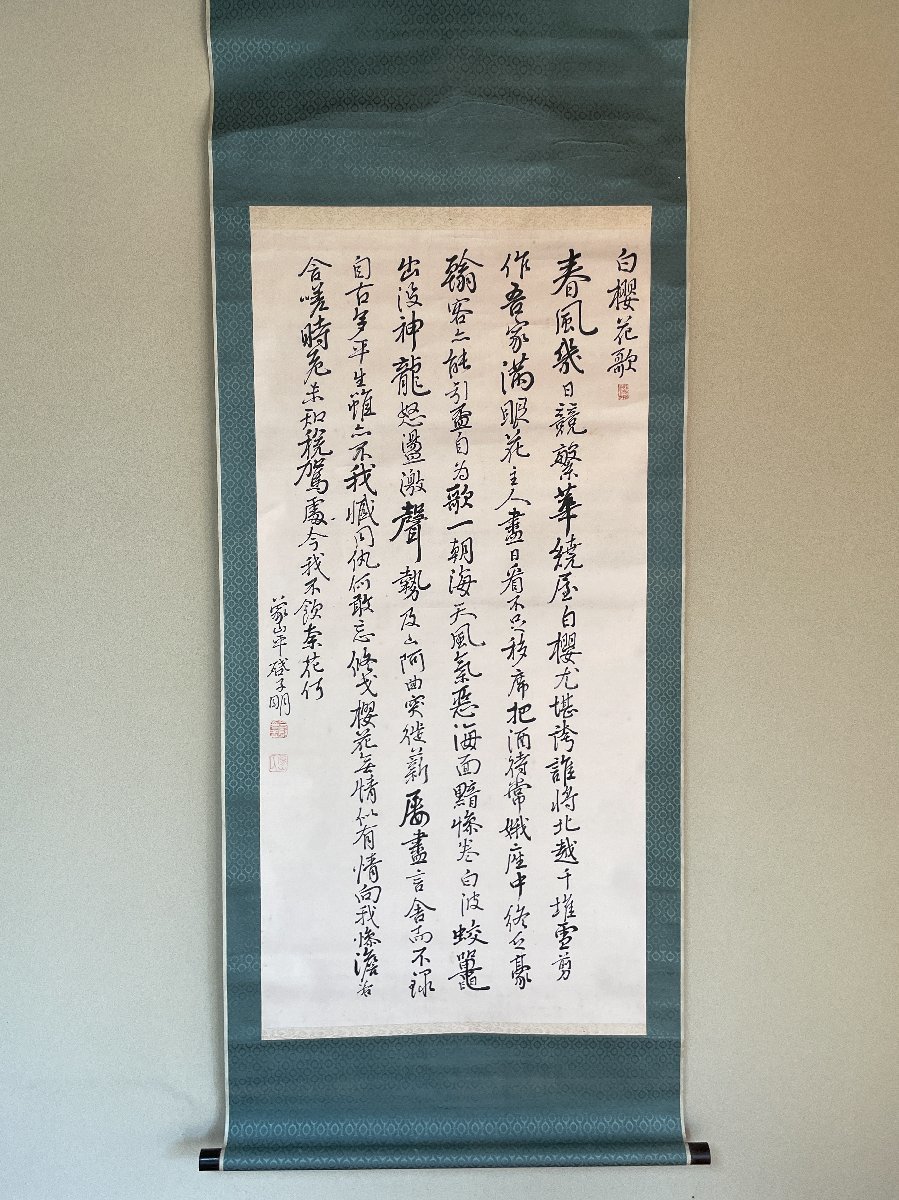 白櫻花歌
春風幾日競繁華繞屋白櫻尤堪誇誰將北越千堆雪剪
作吾家滿眼花主人盡日看不足移席把酒待嫦娥座中終乏豪
翰客亦能引盃自為歌一朝海天風氣惡海面黯慘卷白波蛟鼉
出沒神龍怒盪激聲勢及山阿曲突徙薪屡盡言舍而不錄
自古多平生雖亦不我懺同仇何敢忘修戈櫻花無情似有情向我慘澹若
含嗟時危未知稅駕處今我不飲奈花何
蒙山平啓子明